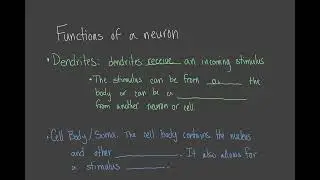 Functions of a neuron
• Dendrites: dendrites receive an incoming stimulus
• The stimulus can be from the
body or can be a
from another neuron or cell.
• Cell Body/Soma: The cell body contains the nucleus
and other . It also allows for
a stimulus .